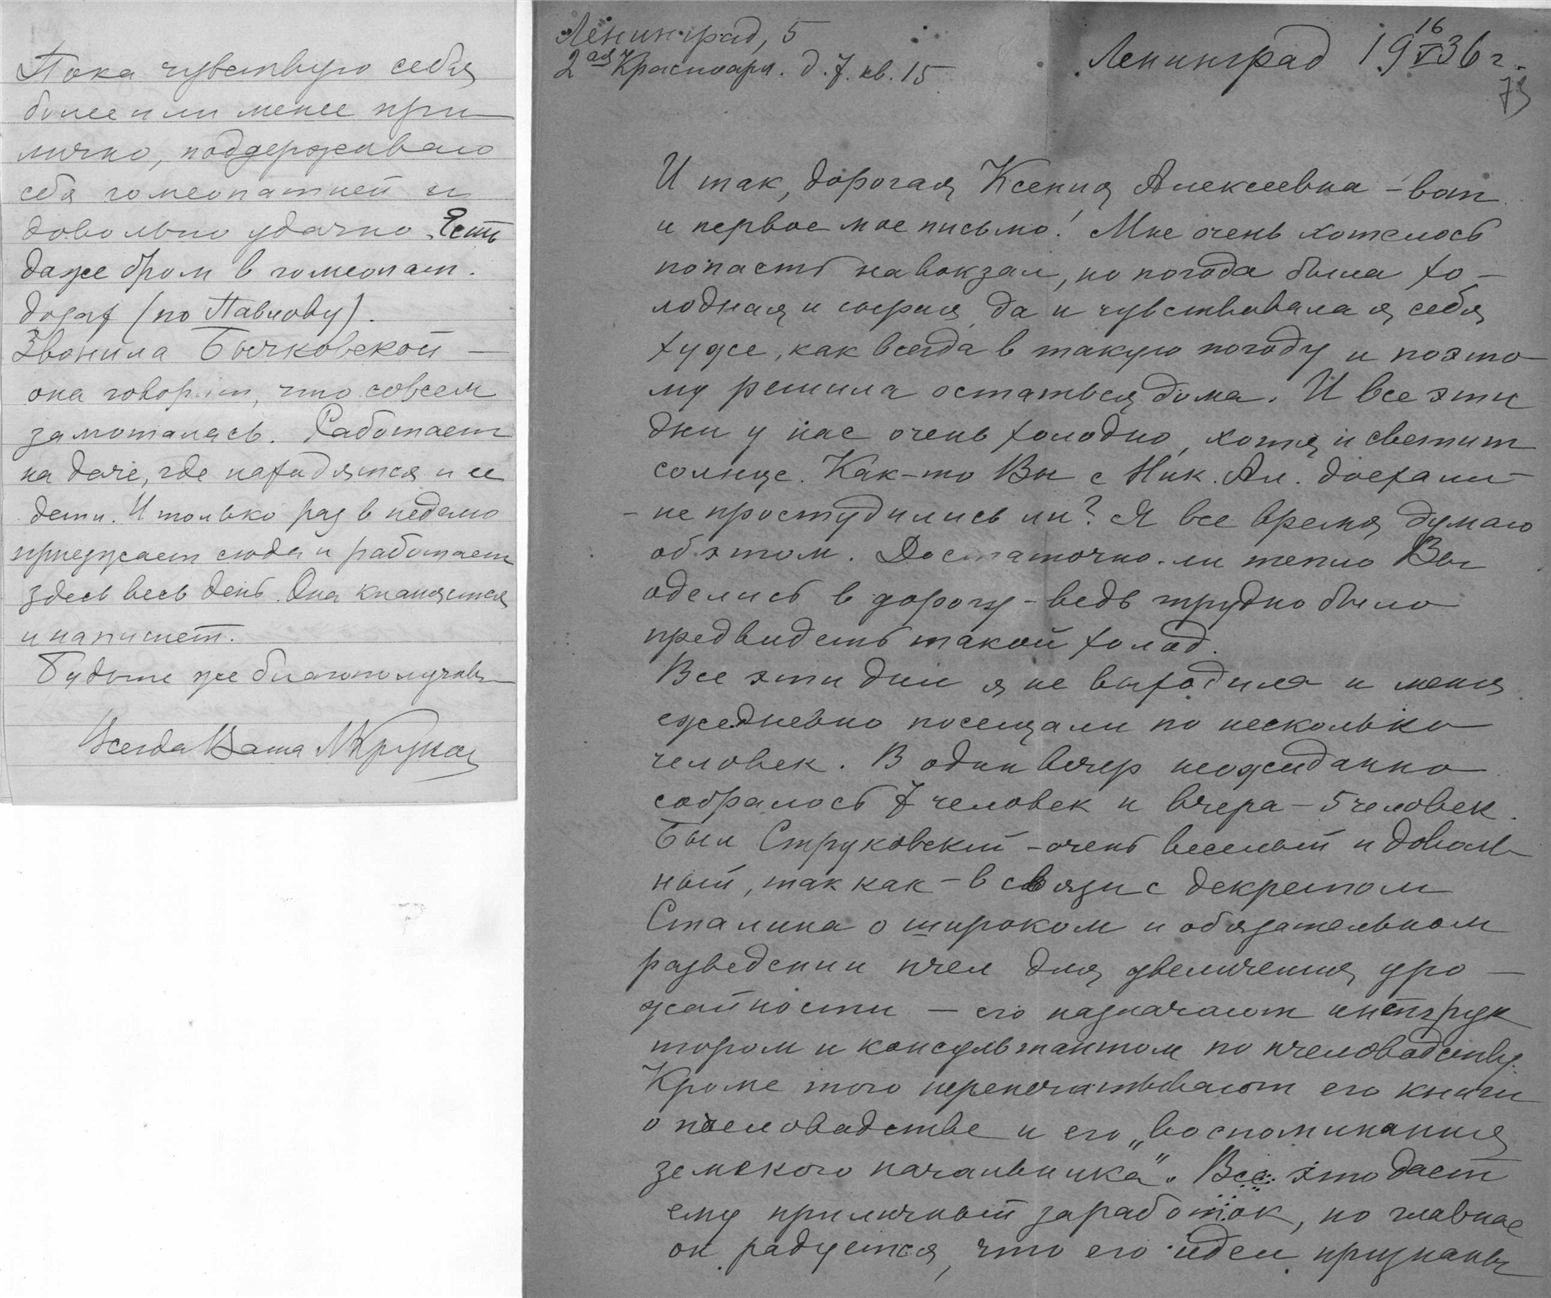 Пока чувствую себя
более или менее при
лично, поддерживаю
себя гомеопатией и
довольно удачно. Есть
даже бром в гомеопат.
дозах (по Павлову).
Звонила Бычковской —
она говорит, что совсем
замоталась. Работает
на даче, где находятся и ее
дети. И только раз в неделю
приезжает сюда и работает
здесь весь день. Она кланяется
и напишет.
Будьте же благополучны
Всегда Ваша
Ленинград, 5
2ая Красноарм. д. 7. кв. 15
Ленинград 19 16/VI 36 г.
73
И так, дорогая Ксения Алексеевна – вот
и первое мое письмо! Мне очень хотелось
попасть на вокзал, но погода была хо-
лодная и сырая, да и чувствовала я себя
хуже, как всегда в такую погоду и поэто-
му решила остаться дома. И все эти
дни у нас очень холодно, хотя и светит
солнце. Как-то Вы с Ник. Ал. доехали –
– не простудились ли? Я все время думаю
об этом. Достаточно-ли тепло Вы
оделись в дорогу – ведь трудно было
предвидеть такой холод.
Все эти дни я не выходила и меня
ежедневно посещали по несколько
человек. В один вечер неожиданно
собралось 7 человек и вчера – 5 человек.
Был Струковский – очень веселый и доволь
ный, так как – в связи с декретом
Сталина о широком и обязательном
разведении пчел для увеличения уро-
жайности – его назначают инструк
тором и консультантом по пчеловодству.
Кроме того перепечатывают его книги
о пчеловодстве и его „воспоминания
земского начальника". Все это дает
ему приличный заработок, но главное
он радуется, что его идеи признаны